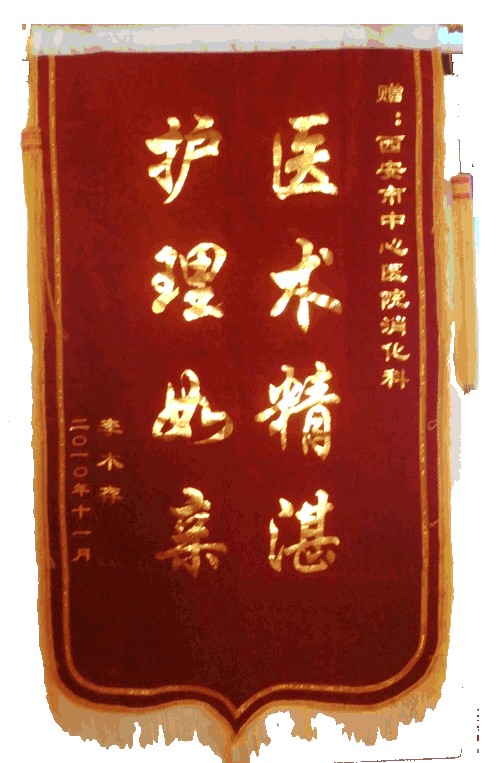 赠：西安市中心医院消化科
医术精湛
护理如亲
二〇一〇年十一月